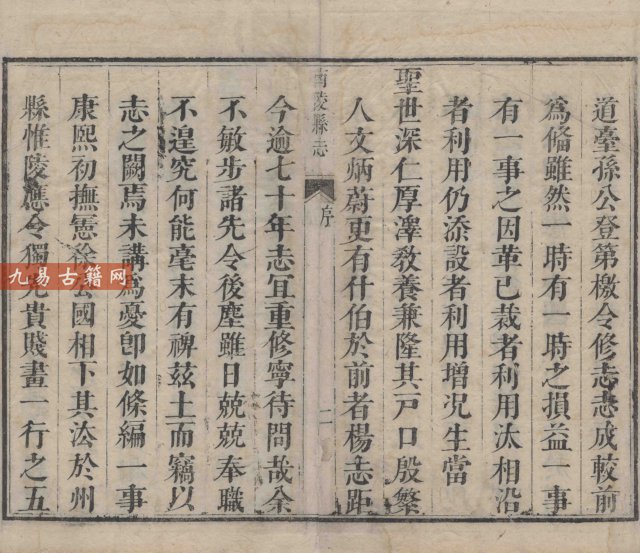 道臺孫公登第檄令修志志成較前
爲僃雖然一時有一時之損益一事
有一事之因革已裁者利用汰相沿
者利用仍添設者利用增况生當
聖世深仁厚澤敎養兼隆其戸口殷繁
人文炳蔚更有什伯於前者楊志距
南陵縣志
序
二
今逾七十年志宜重修寧待問哉余
不敏步諸先令後塵雖日兢兢奉職
不遑究何能毫末有裨兹土而竊以
志之闕焉未講爲憂卽如條編一事
康熙初撫憲徐公國相下其汯於州
縣惟陵應令獨先貴賤畫一行之五
九易古籍网